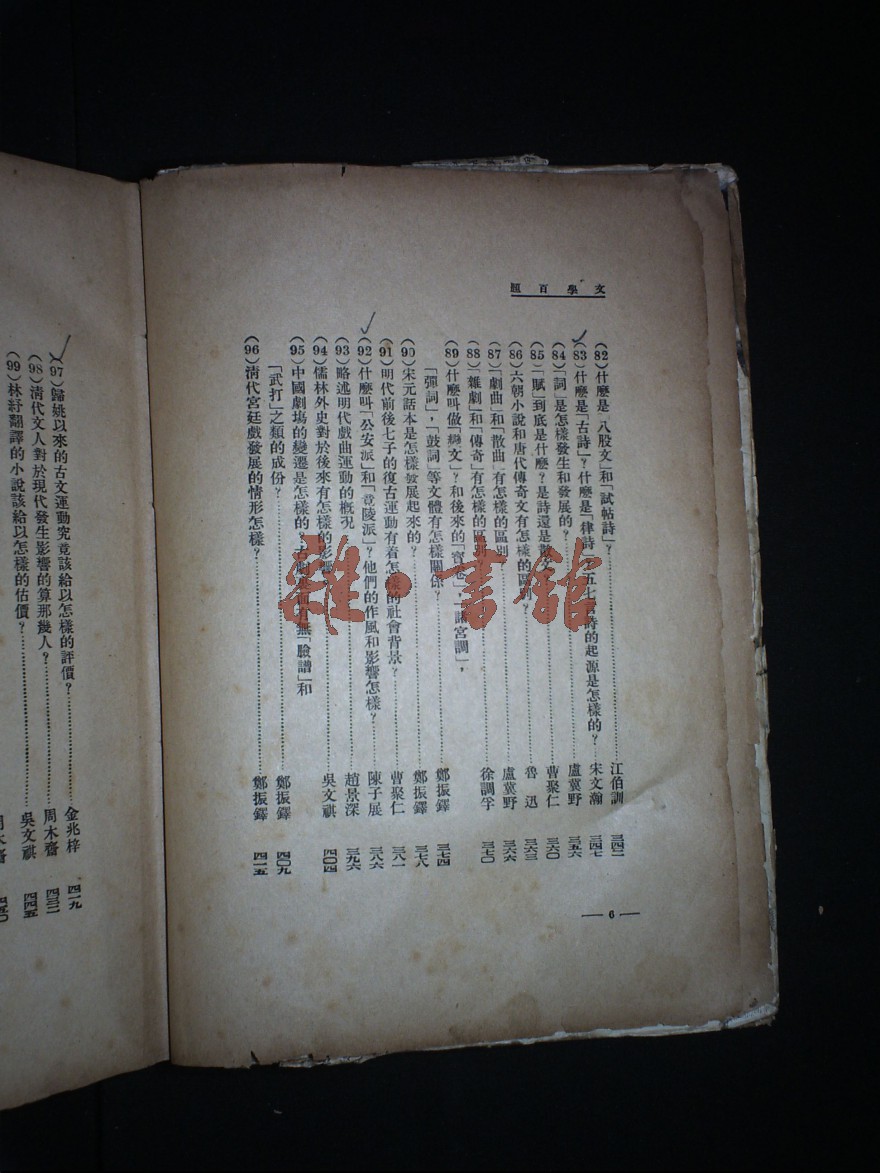 文學百題
(82)什麼是「八股文」和「試帖詩」？……江伯訓 三四二
(83)什麼是「古詩」？什麼是「律詩」？五七言詩的起源是怎樣的？……宋文瀚 三四七
(84)「詞」是怎樣發生和發展的？……盧冀野 三五六
(85)「賦」到底是什麼？是詩還是散……曹聚仁 三六〇
(86)六朝小說和唐代傳奇文有怎樣的區別？……魯迅 三六三
(87)「劇曲」和「散曲」有怎樣的區別……盧冀野 三六六
(88)「雜劇」和「傳奇」有怎樣的區別……徐調孚 三七〇
(89)什麼叫做「變文」？和後來的「寶卷」，「諸宮調」，
「彈詞」，「鼓詞」等文體有怎樣關係？……鄭振鐸 三七四
(90)宋元話本是怎樣發展起來的？……鄭振鐸 三七八
(91)明代前後七子的復古運動有着怎樣的社會背景？……曹聚仁 三八一
(92)什麼叫「公安派」和「竟陵派」？他們的作風和影響怎樣？……陳子展 三八六
(93)略述明代戲曲運動的概況……趙景深 三九六
(94)儒林外史對於後來有怎樣的影響……吳文祺 四〇四
(95)中國劇場的變遷是怎樣的？古劇 有無「臉譜」和
「武打」之類的成份？……鄭振鐸 四〇九
(96)清代宮廷戲發展的情形怎樣？……鄭振鐸 四一五
— 6 —
(97)歸姚以來的古文運動究竟該給以怎樣的評價？……金兆梓 四一九
(98)清代文人對於現代發生影響的算那幾人？……周木齋 四三二
(99)林紓翻譯的小說該給以怎樣的估價？……吳文祺 四四五
周木齋 四五〇
雜·書館